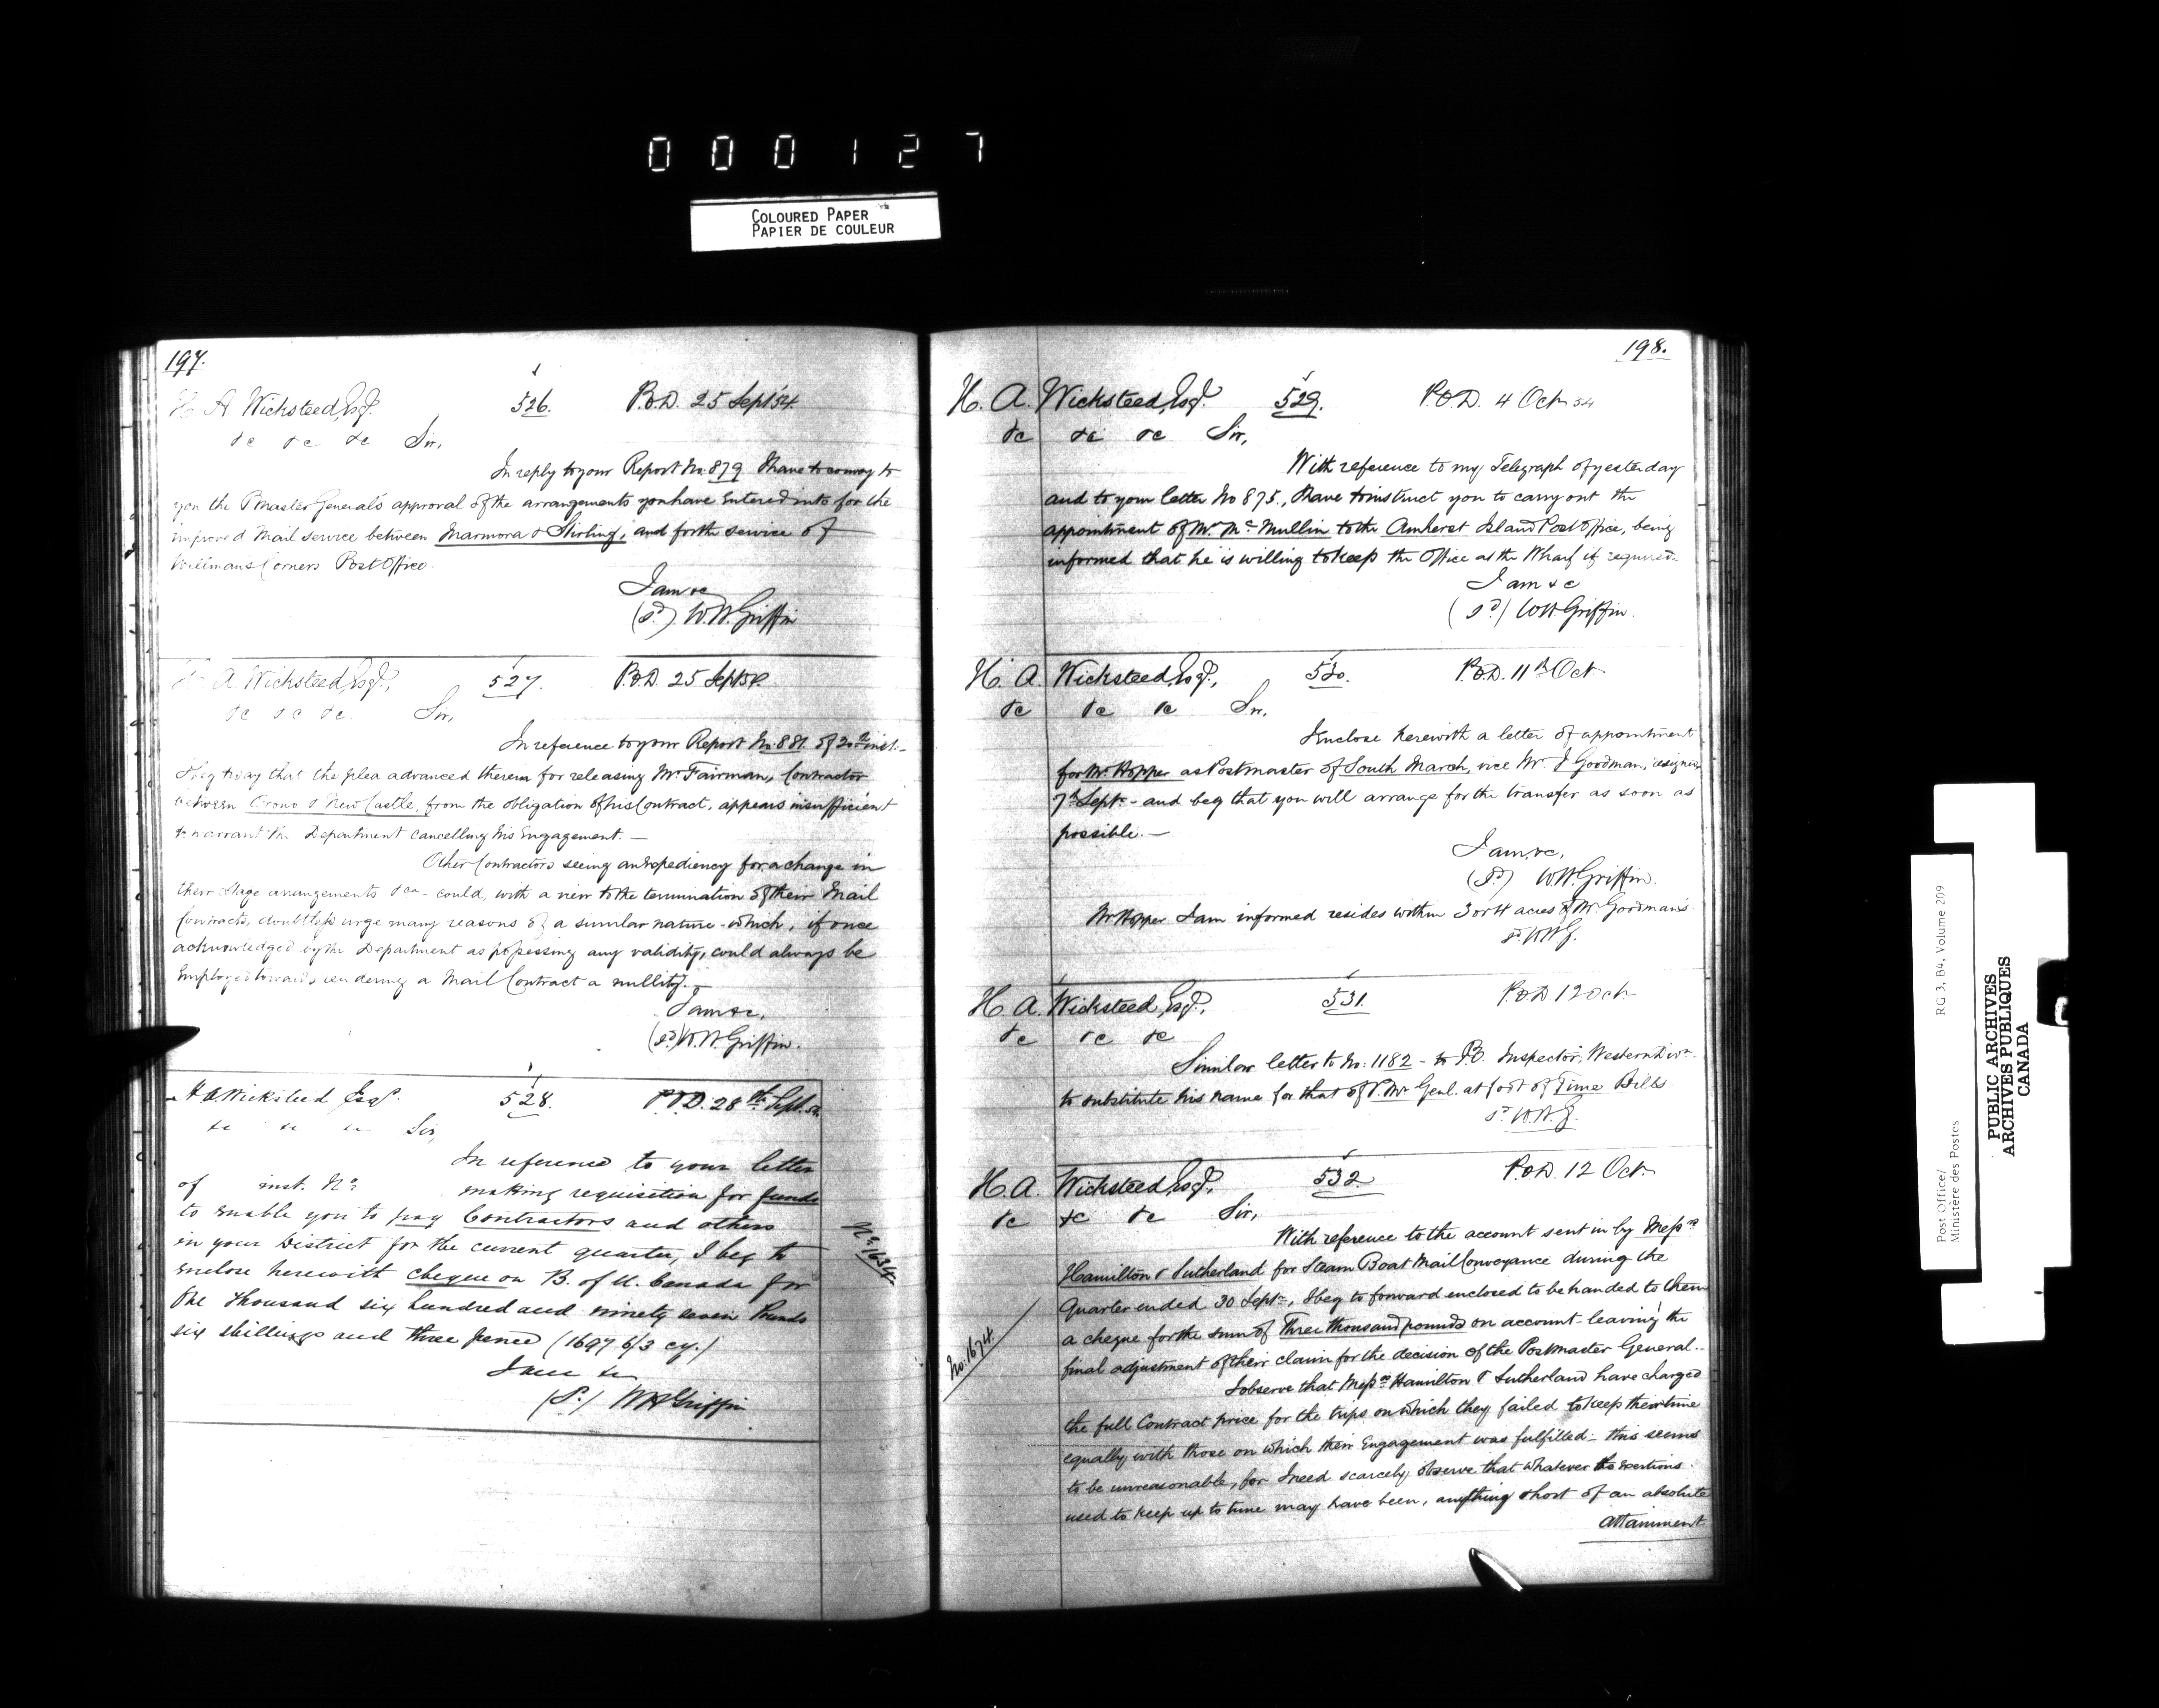 000127
COLOURED PAPER
PAPIER DE COULEUR
197.
H A Wicksteed, Esqr. 526. P.O.D. 25 Sept 54.
&c &c &c Sir,
In reply to your Report No. 879 I have to convey to
you the P Master General's approval of the arrangements you have entered into for the
improved Mail service between Marmora & Stirling, and for the service of
Corners Post Office.
I am &c
(sd) W. H. Griffin
H. A. Wicksteed, Esqr., 527. P.O.D. 25 Sept 54.
&c &c &c. Sir,
In reference to your Report No. 881. of 20th inst.-
I beg to say that the plea advanced therein for releasing Mr. Fairman, Contractor
between Orono & New Castle, from the obligation of his Contract, appears insufficient
to warrant the Department cancelling his Engagement. —
Other Contractors seeing an expediency for a change in
their stage arrangements &ca - could, with a view to the termination of their Mail
Contracts, doubtless urge many reasons of a similar nature - which, if once
acknowledged by the Department as possessing any validity, could always be
employed towards rendering a Mail Contract a nullity. —
I am &c,
(sd) W. H. Griffin.
H A Wicksteed Esqr. 528. P.O.D. 28th Sept. 54.
&c &c &c Sir,
In reference to your letter
of inst. No. making requisition for funds
to enable you to pay Contractors and others
in your District for the current quarter, I beg to
enclose herewith cheque on B. of U. Canada for
One thousand six hundred and ninety seven Pounds
six shillings and three pence (1697 6/3 cy.)
I am &c
(S.) W H Griffin
No. 1634
198.
H. A. Wicksteed, Esqr. 529. P.O.D. 4 Oct 54
&c &c &c Sir,
With reference to my Telegraph of yesterday
and to your letter No 875., I have to instruct you to carry out the
appointment of Mr. McMullin to the Amherst Island Post Office, being
informed that he is willing to keep the Office at the Wharf if required.
I am &c
(sd) W H Griffin.
H. A. Wicksteed, Esqr., 530. P.O.D. 11th Oct
&c &c &c Sir,
I enclose herewith a letter of appointment
for Mr. Hopper as Postmaster of South March, vice Mr J Goodman, resigned
7th Sept. - and beg that you will arrange for the transfer as soon as
possible. —
I am, &c,
(sd) W. H. Griffin.
Mr Hopper I am informed resides within 3 or 4 acres of Mr. Goodman's.
sd W H G.
H. A. Wicksteed, Esqr., 531. P.O.D. 12 Oct
&c &c &c
Similar letter to No. 1182 - to P.O. Inspector, Western Divn.
to substitute his name for that of P. Mr Genl. at foot of Time Bills.
sd W. H. G.
H. A. Wicksteed, Esqr., 532 P.O.D. 12 Oct.
&c &c &c Sir,
With reference to the account sent in by Messrs
Hamilton & Sutherland for Steam Boat Mail Conveyance during the
Quarter ended 30 Sept., I beg to forward enclosed to be handed to them
a cheque for the sum of Three thousand pounds on account - leaving the
final adjustment of their claim for the decision of the Postmaster General. -
I observe that Messrs Hamilton & Sutherland have charged
the full Contract price for the trips on which they failed to keep their time
equally with those on which their Engagement was fulfilled - this seems
to be unreasonable, for I need scarcely observe that whatever the exertions
used to keep up to time may have been, anything short of an absolute
attainment
No. 1674.
Post Office/
Ministère des Postes
RG 3, B4, Volume 209
PUBLIC ARCHIVES
ARCHIVES PUBLIQUES
CANADA